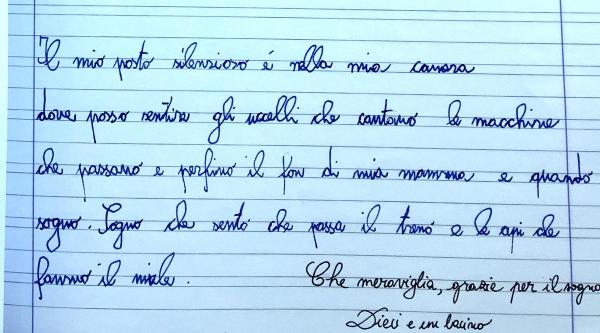 Il mio posto silenzioso é nella mia camera
dove posso sentire gli uccelli che cantano le macchine
che passano e perfino il fon di mia mamma e quando
sogno. Sogno che sento che passa il treno e le api che
fanno il miele.
Che meraviglia, grazie per il sogno
Dieci e un bacino